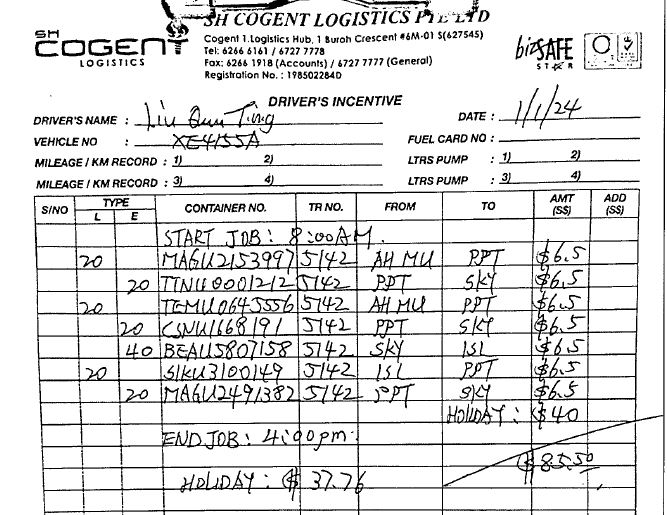 SH COGENT LOGISTICS PTE LTD
SH
COGENT
LOGISTICS
Cogent 1.Logistics Hub, 1 Buroh Crescent #6M-01 S(627545)
Tel: 6266 6161 / 6727 7778
Fax: 6266 1918 (Accounts) / 6727 7777 (General)
Registration No. : 198502284D
bizSAFE
STAR
DRIVER'S INCENTIVE
DRIVER'S NAME : Liu Qun Ting
DATE : 1/1/24
VEHICLE NO : XE4155A
FUEL CARD NO :
MILEAGE / KM RECORD : 1) 2) LTRS PUMP : 1) 2)
MILEAGE / KM RECORD : 3) 4) LTRS PUMP : 3) 4)
S/NO TYPE L E CONTAINER NO. TR NO. FROM TO AMT (S$) ADD (S$)
START JOB: 8:00AM.
20 MAGU2153997 5142 AH MU PPT $6.5
20 TTNU0001212 5142 PPT SKY $6.5
20 TEMU0645556 5142 AH MU PPT $6.5
20 CSNU1668191 5142 PPT SKY $6.5
40 BEAU5807158 5142 SKY ISL $6.5
20 SIKU3100149 5142 ISL PPT $6.5
20 MAGU2491382 5142 PPT SKY $6.5
HOLIDAY : $40
END JOB: 4:00pm.
$85.50
HOLIDAY : $ 37.76